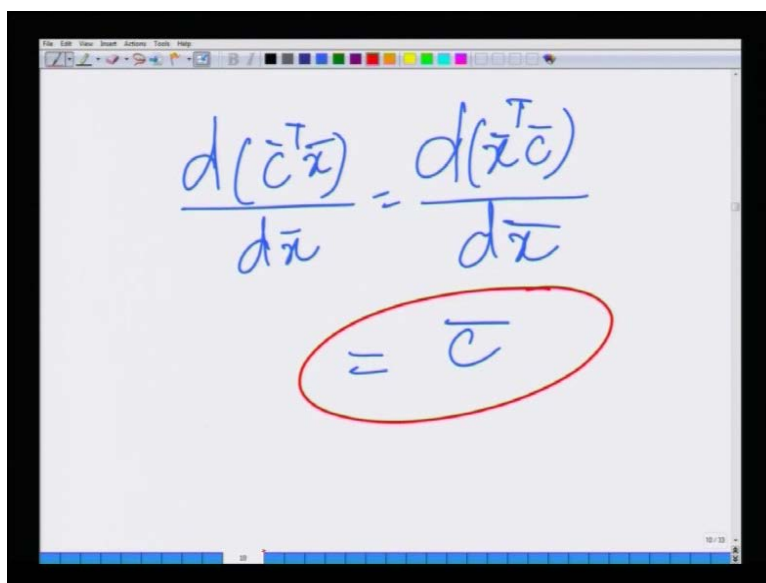 File Edit View Insert Actions Tools Help
B I
d(c̄ᵀx̄)/dx̄ = d(x̄ᵀc̄)/dx̄
= c̄
10 / 33
10